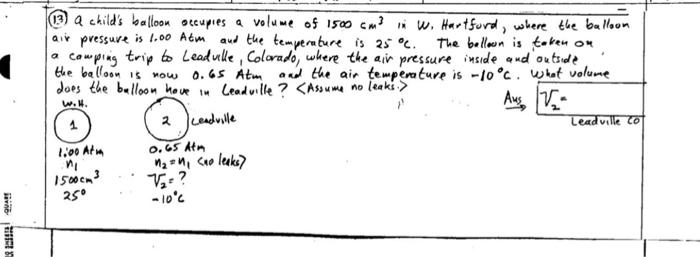 (13) a child's balloon occupies a volume of 1500 cm³ in W. Hartford, where the balloon
air pressure is 1.00 Atm and the temperature is 25 °C. The balloon is taken on
a camping trip to Leadville, Colorado, where the air pressure inside and outside
the balloon is now 0.65 Atm and the air temperature is -10°C. What volume
does the balloon have in Leadville? <Assume no leaks.>
Ans V₂=
Leadville CO
W.H.
1
2 Leadville
1.00 Atm
0.65 Atm
n₁
n₂=n₁ <no leaks>
1500cm³
V₂=?
25°
-10°C